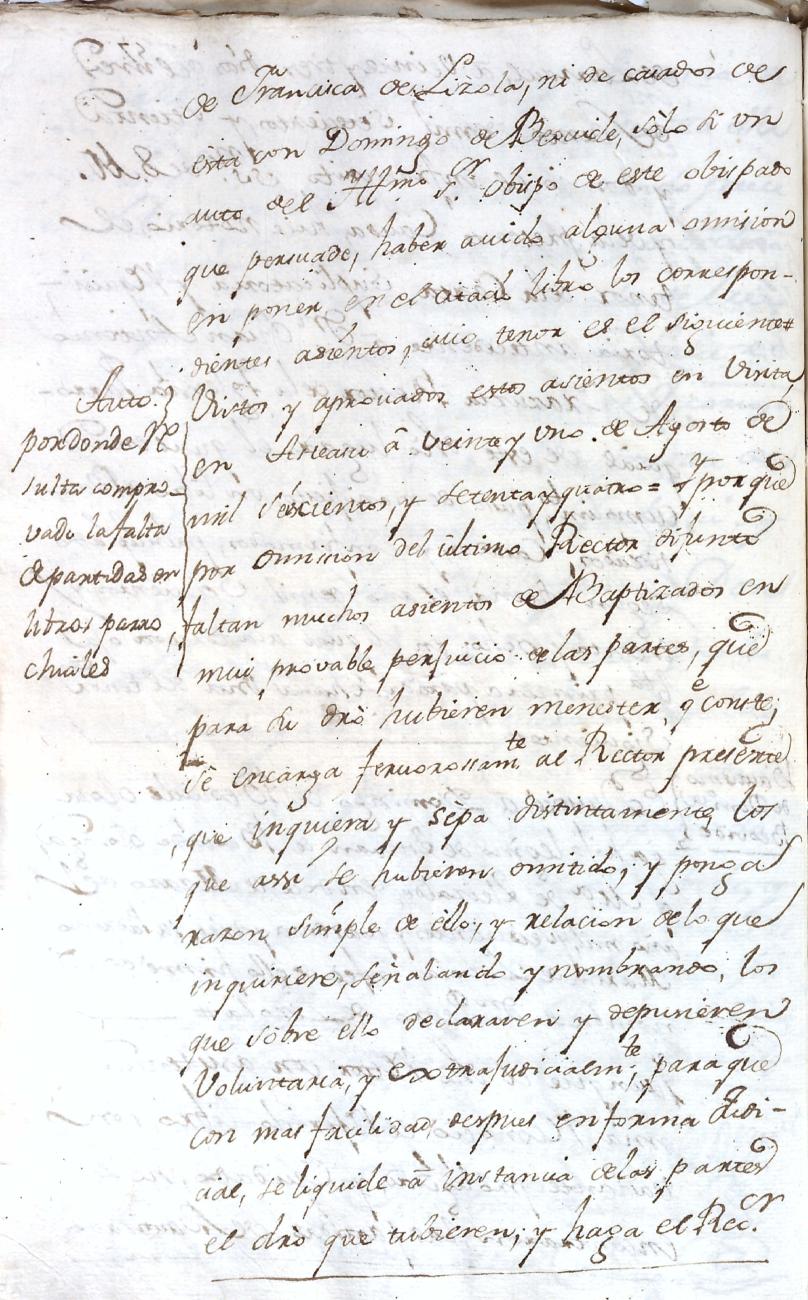 de Fran.ca de Lizola, ni de casados de
esta con Domingo de Beovide, sólo si un
auto del Yllmo Sr. obispo de este obispado
que persuade, haber avido alguna omision
en poner en el citado libro los correspon-
dientes asientos, cuio tenor es el siguiente =
Auto.
por donde Re
sulta compro-
vado la falta
de partidas en
libros parro
chiales
Vistos y aprovados estos asientos en Visita
en Asteasu â veinte y uno de Agosto de
mil seiscientos, y setenta y quatro = y porque
por omission del ultimo Rector difunto
faltan muchos asientos de Baptizados en
mui provable perjuicio de las partes, que
para su dró hubieren menester, qe conste;
se encarga fervorossamte al Rector presente
que inquiera y sepa distintamente, los
que assi se hubieren omitido; y ponga
razon simple de ello, y relacion de lo que
inquiriere, señalando y nombrando, los
que sobre ello declararen y depusieren
Voluntaria, y extrajudicialmte, para que
con mas facilidad, despues en forma Judi-
cial, se liquide â instancia de las partes
el dró que tubieren; y haga el Recr.